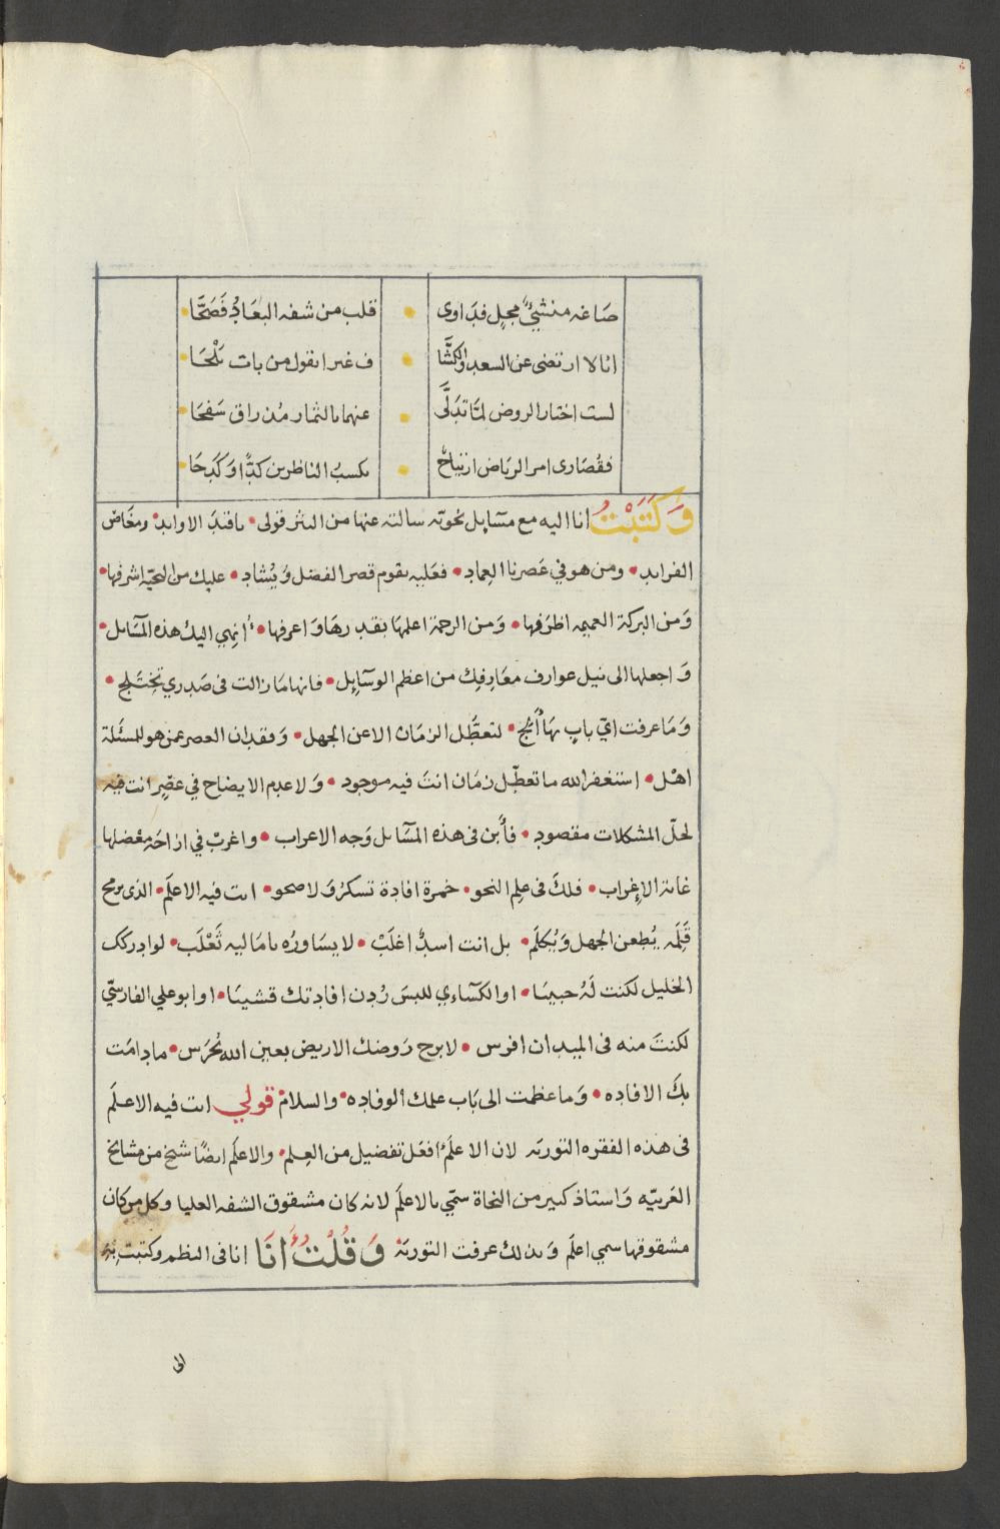 صَاغه منشئٌ مجل فدَاوى • قلب من شفه البعَادُ فَصَحَّا
انا لا ارتضى عن السعد والكشَّا • ف غيرا نقول من بات يَلْحَا
لست اختار الروض لمّا تدَلَّى • عنهما بالثمار مُذ راق سَفحَا
فقُصَارى امر الريَاض ارتياحٌ • يكسبُ الناظرين كدًّا وَكَدحَا
وَكَتَبْتُ انا اليه مع مسَايل نحويّه سالته عنها من النثر قولى • ياقيدَ الاوابد • ومغَاص
الفرايد • ومن هو في عَصرنا العِماد • فعَليه يقوم قصر الفضل وَيُشاد • عليك من التحيّة اشرفها •
وَمن البركة العميمه اطرَفها • وَمن الرحمة اعلمهَا بقدرهَا وَاعرفها • أُنهي اليك هذه المسَايل •
وَاجعلها الى نيل عوارف معَارِفِك من اعظم الوسَايل • فانها مَا زالت فى صَدري تختَلِج •
وَمَا عرفت ايّ بابٍ بهَا أَلِج • لتعطُّل الزمَان الا عن الجهل • وَفقدان العصر عمن هو للمسئلة
اهْل • استغفر الله ما تعطّل زمَان انتَ فيه موجود • وَلا عدم الايضاح في عصرٍ انت فيه
لحلّ المشكلات مقصود • فأَبن فى هذه المسَايل وَجه الاعراب • واغربْ في ازاحَة معْضلها
غاية الاِغراب • فلكَ فى علِم النحو • خمرة افادة تسكرُ وَلا صحو • انت فيه الاعلَم • الذى برمح
قَلَمه يُطعن الجهل وَيُكلَم • بل انت اسدٌ اغلَبْ • لا يسَاورُه يامَاليه ثَعْلَب • لو ادركك
الخليل لكنت لَهُ حبيبًا • او الكسَاءي للبسَ رُدن افادتك قشيبًا • او ابو علي الفارسيّ
لكنتَ منه فى الميدان افرس • لا برح رَوضك الاريض بعين الله يُحرَس • ما دامَت
بكَ الافاده • وَما عظمت الى بَاب علمك الوفاده • والسلامْ قولي انت فيه الاعلَم
فى هذه الفقره التوريَه لان الاعلَم افعَل تفضيل من العِلم • والاعلَم ايضًا شيخ من مشَايخ
العَربيّه وَاستاذ كبير من النحاة سمّي بالاعلَم لانه كان مشقوق الشفه العليا وكل من كان
مشقوقها سمي اعلَم وَبذلك عرفت التوريَة وَقُلْتُ أَنَا انا فى النظم وكتبتُ بهَ
الى